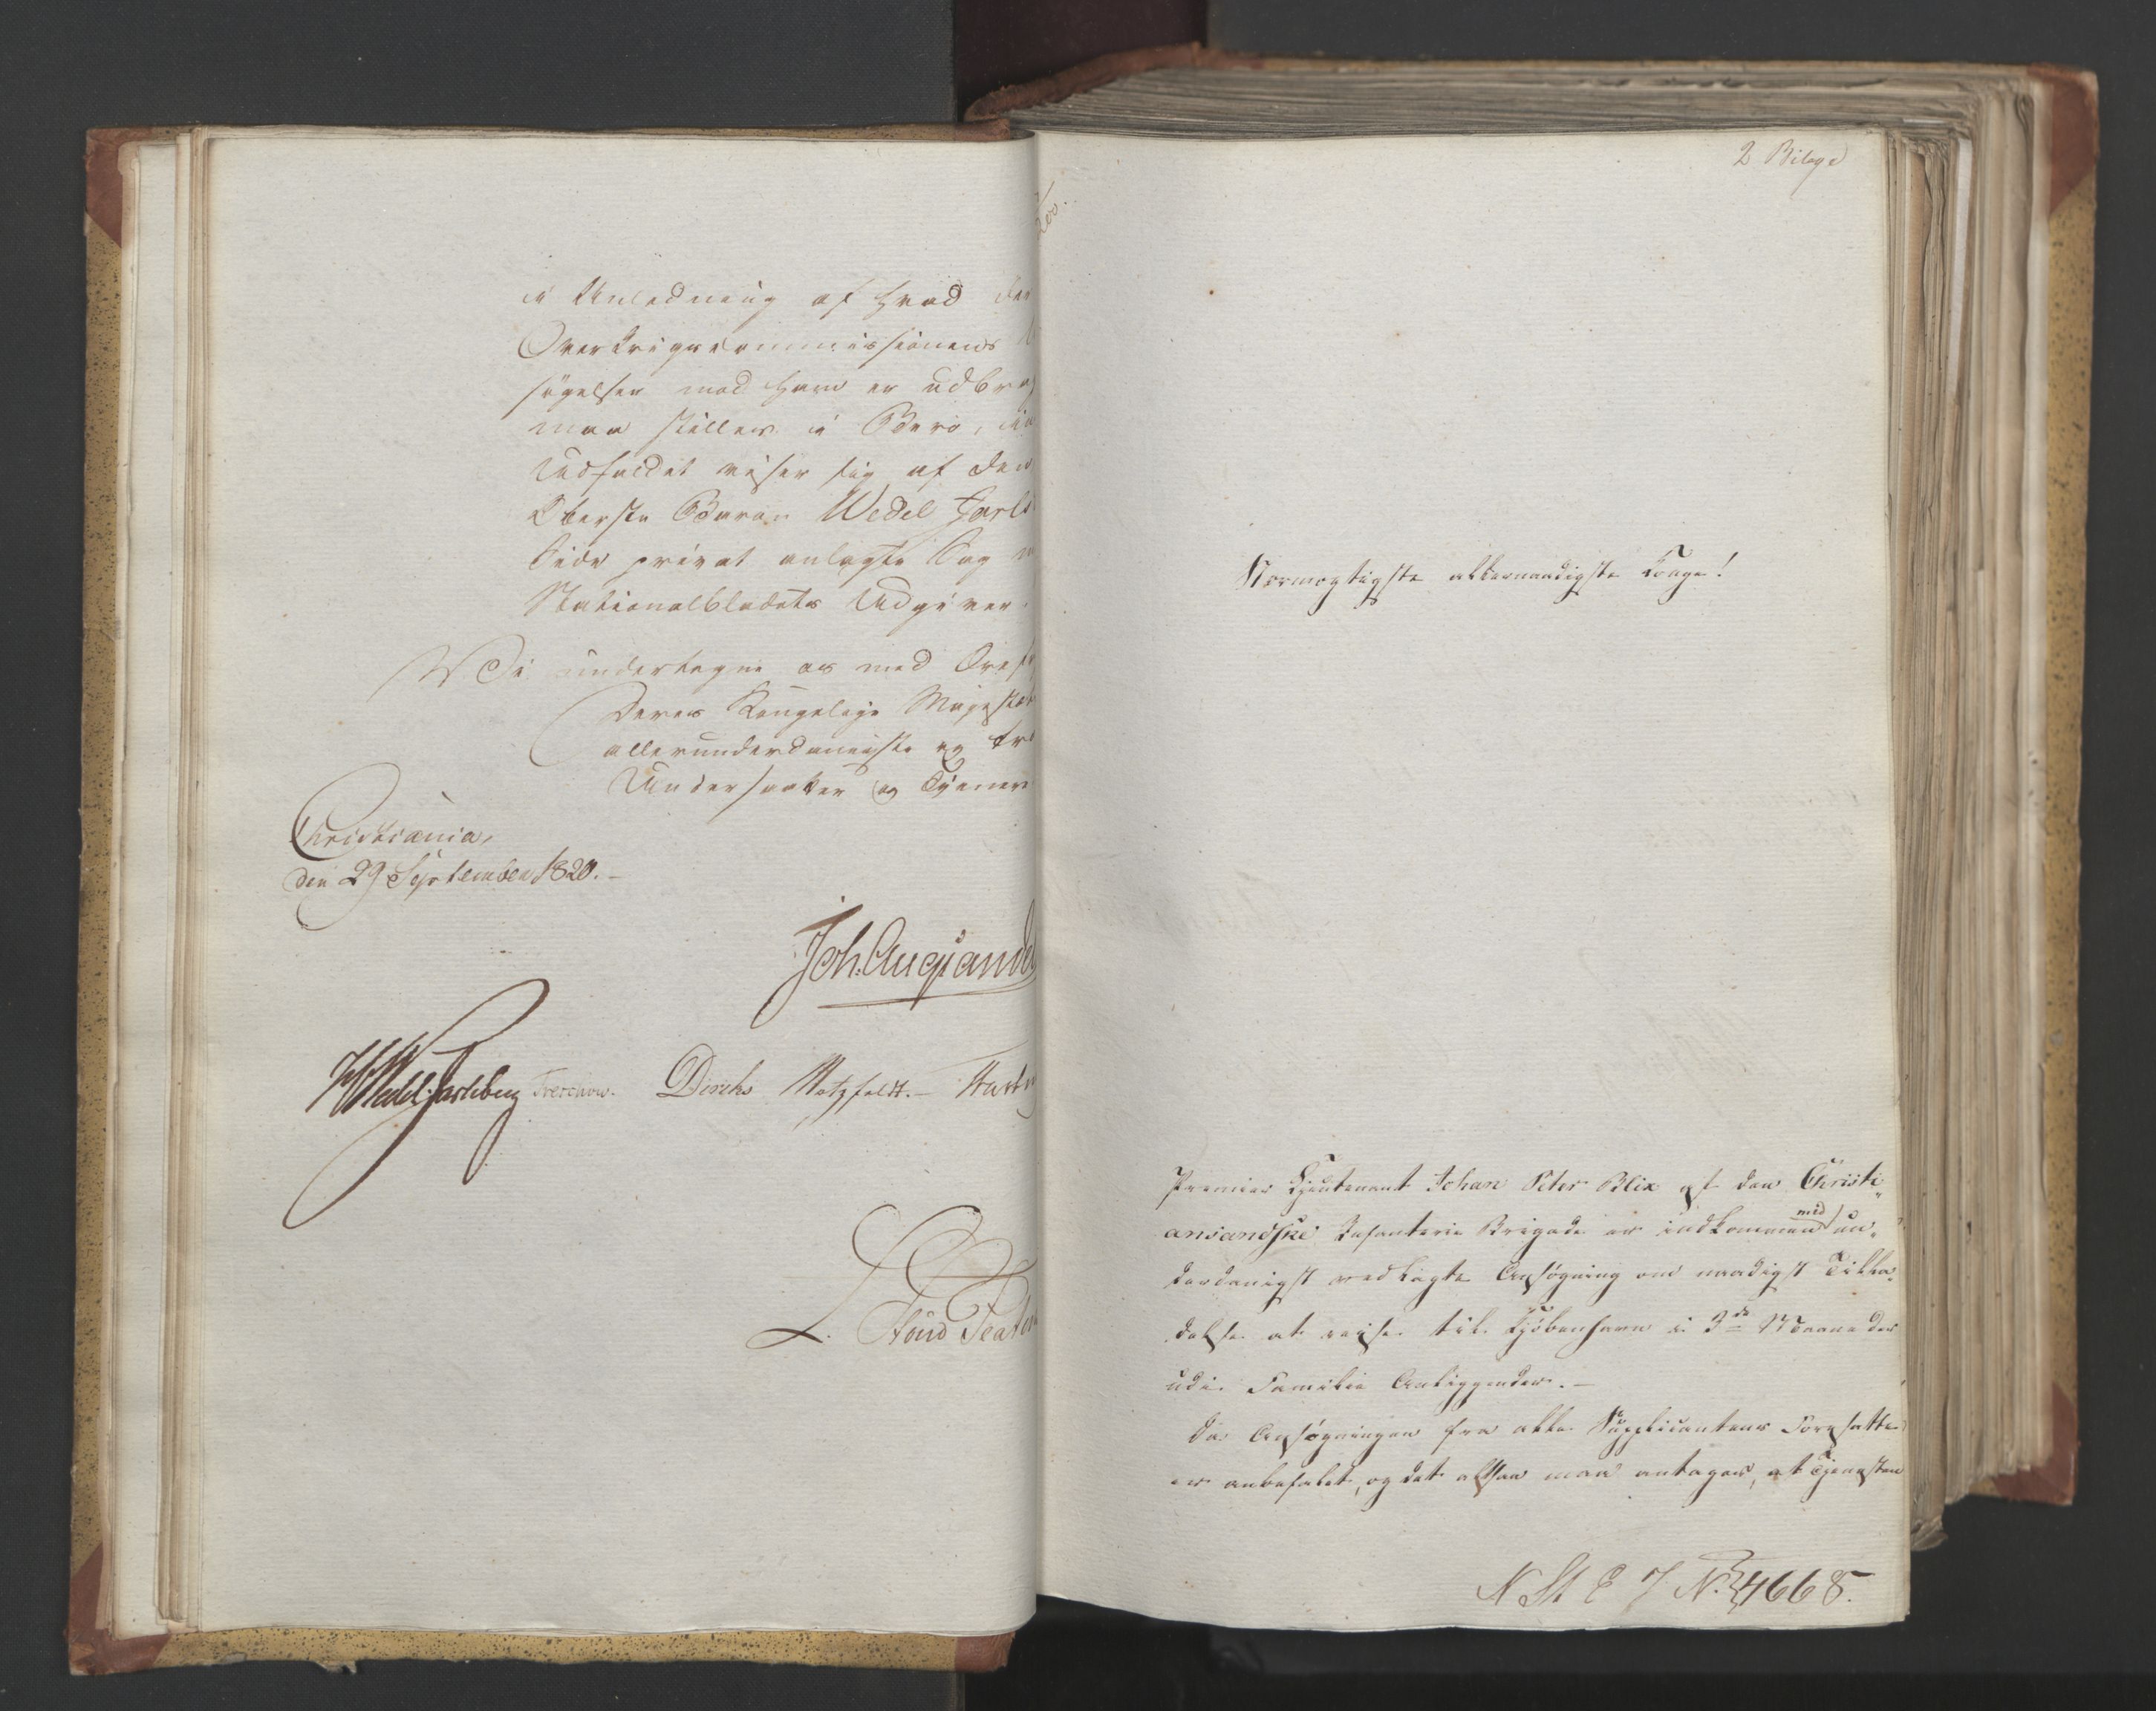 i Anledning af hvad der
Overkrigscommissionens
søgelser mod ham er udbrag
maa stilles i Bero, in
Udfaldet viser sig af den
Oberste Baron Wedel Jarls
Side privat anlagte Sag m
Nationalbladets Udgiver.
Vi undertegne os med
Deres Kongelige Majestæt
allerunderdanigste og tro
Undersaatter og Tjenere
Christiania,
den 29 September 1820.-
Joh. Aug Sandel
HWedel-Jarlsberg Treschow. Diriks Motzfeldt.- Hart
L.
200.
2 Bilage
Stormægtigste allernaadigste Konge!
Premier Ljeutenant Johan Peter Blix af den Christi„
ansandske Infanterie Brigade er indkommen med un„
derdanigst vedlagte Ansøgning om naadigst Tilla„
delse at reise til Kjøbenhavn i 3de Maaneder
udi Familie Anliggender.-
Da Ansøgningen fra alle Supplicantens Foresatte
er anbefalet, og det altsaa maa antages, at Tjenesten
N St E J No 4668.